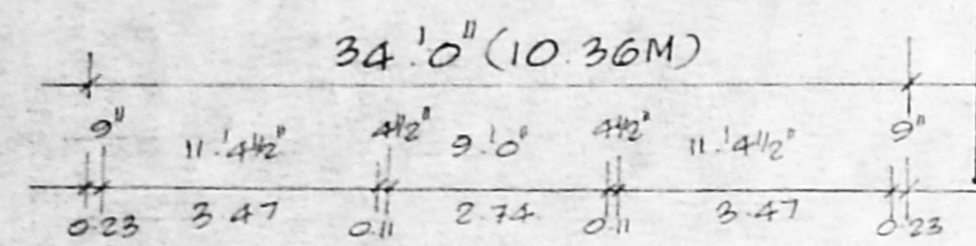 34.'0" (10.36M)
9" 11.'4½" 4½" 9.'0" 4½" 11.'4½" 9"
0.23 3.47 0.11 2.74 0.11 3.47 0.23